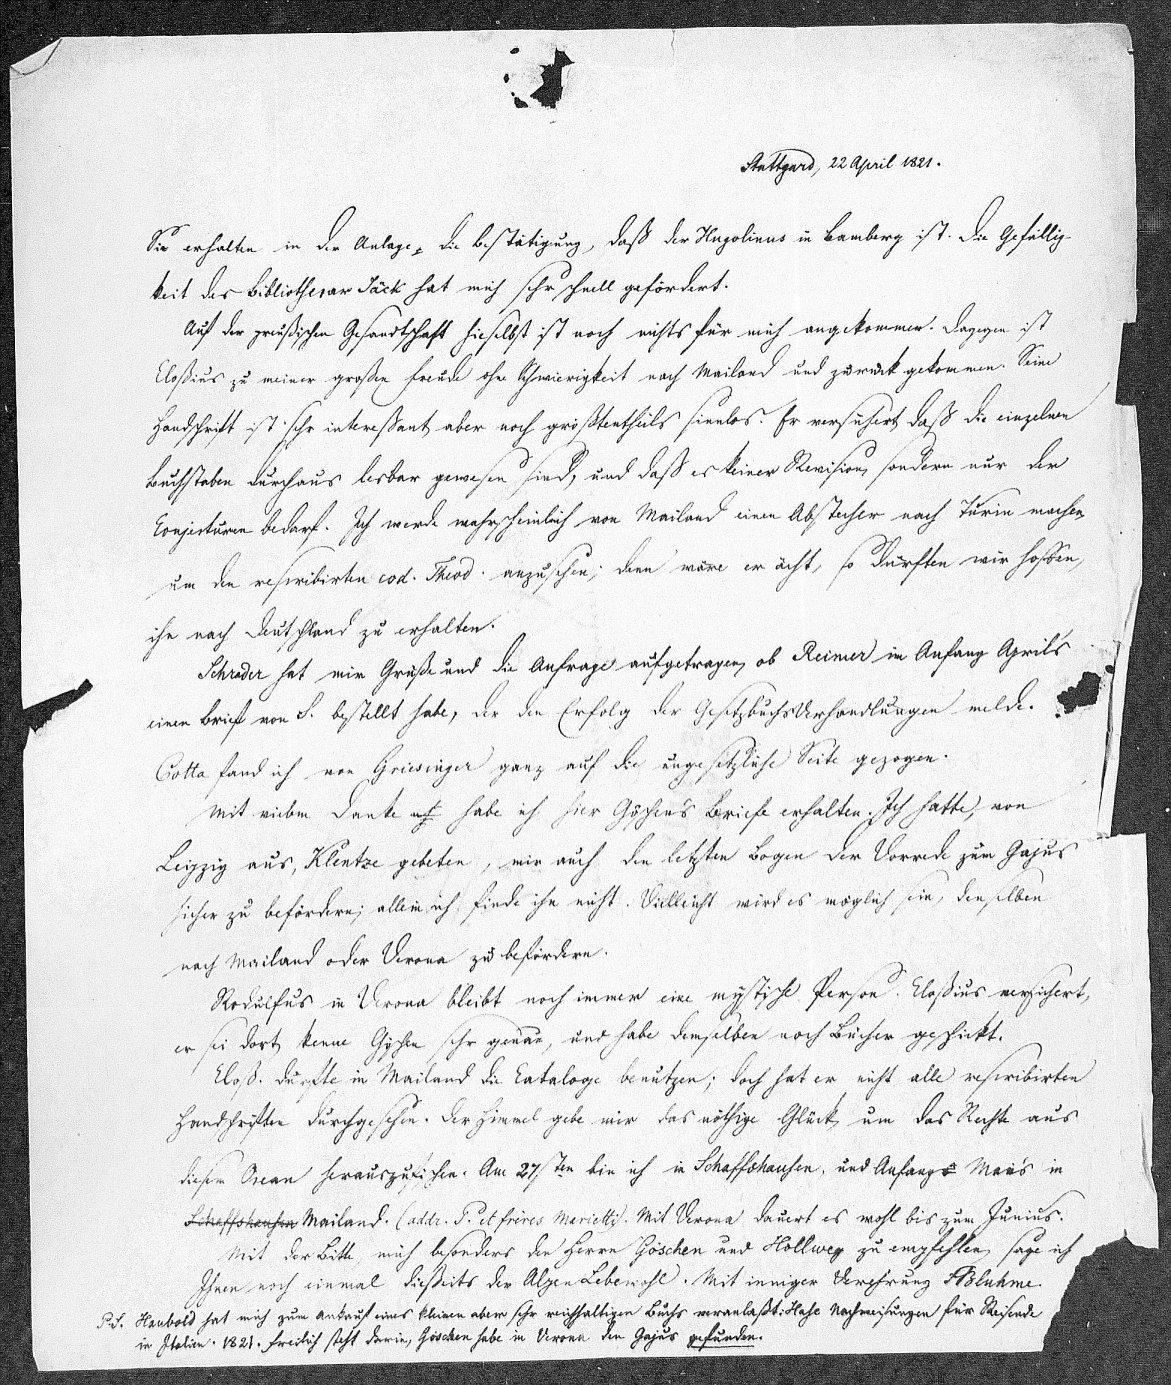 Stuttgard, 22 April 1821.
Sie erhalten in der Anlage, die Bestätigung, daß der Hugolinus in Bamberg ist. Die Gefällig-
keit des Bibliothecar Jäck hat mich sehr schnell gefördert.
Auf der preußischen Gesandtschaft hieselbst ist noch nichts für mich angekommen. Dagegen ist
Cloßius zu meiner großen Freude ohne Schwierigkeit nach Mailand und zurück gekommen. Seine
Handschrift ist sehr interessant aber noch größtentheils sinnlos. Er versichert daß die einzelnen
Buchstaben durchaus lesbar gewesen sind, und daß es keiner Revision, sondern nur der
Conjecturen bedarf. Ich werde wahrscheinlich von Mailand einen Abstecher nach Turin machen,
um den rescribirten cod. Theod. anzusehen; denn wäre er ächt, so dürften wir hoffen,
ihn nach Deutschland zu erhalten.
Schrader hat mir Grüße und die Anfrage aufgetragen, ob Reimer im Anfang Aprils
einen Brief von S. bestellt habe, der den Erfolg der Gesetzbuchs Verhandlungen melde.
Cotta fand ich von Griesinger ganz auf die ungesetzliche Seite gezogen.
Mit vielem Danke habe ich hier Göschens Briefe erhalten. Ich hatte, von
Leipzig aus, Klentze gebeten, mir auch den letzten Bogen der Vorrede zum Gajus
hieher zu befördern; allein ich finde ihn nicht. Vielleicht wird es möglich sein, denselben
nach Mailand oder Verona zu befördern.
Rodulfus in Verona bleibt noch immer eine mystische Person. Cloßius versichert,
er sei dort, kenne Göschen sehr genau, und habe demselben noch Bücher geschickt.
Cloß. durfte in Mailand die Cataloge benutzen; doch hat er nicht alle rescribirten
Handschriften durchgesehen. Der Himmel gebe mir das nöthige Glück, um das Rechte aus
diesem Ocean herauszufischen. Am 27sten bin ich in Schaffshausen, und Anfangs Mai's in
Schaffshausen Mailand. (addr. P. et frères Marietti). Mit Verona dauert es wohl bis zum Junius.
Mit der Bitte, mich besonders den Herrn Göschen und Hollweg zu empfehlen, sage ich
Ihnen noch einmal dießseits der Alpen Lebewohl. Mit inniger Verehrung FBluhme.
P.S. Haubold hat mich zum Ankauf eines kleinen aber sehr reichhaltigen Buchs veranlaßt: Hase Nachweisungen für Reisende
in Italien. 1821. Freilich steht darin, Göschen habe in Verona den Gajus gefunden.